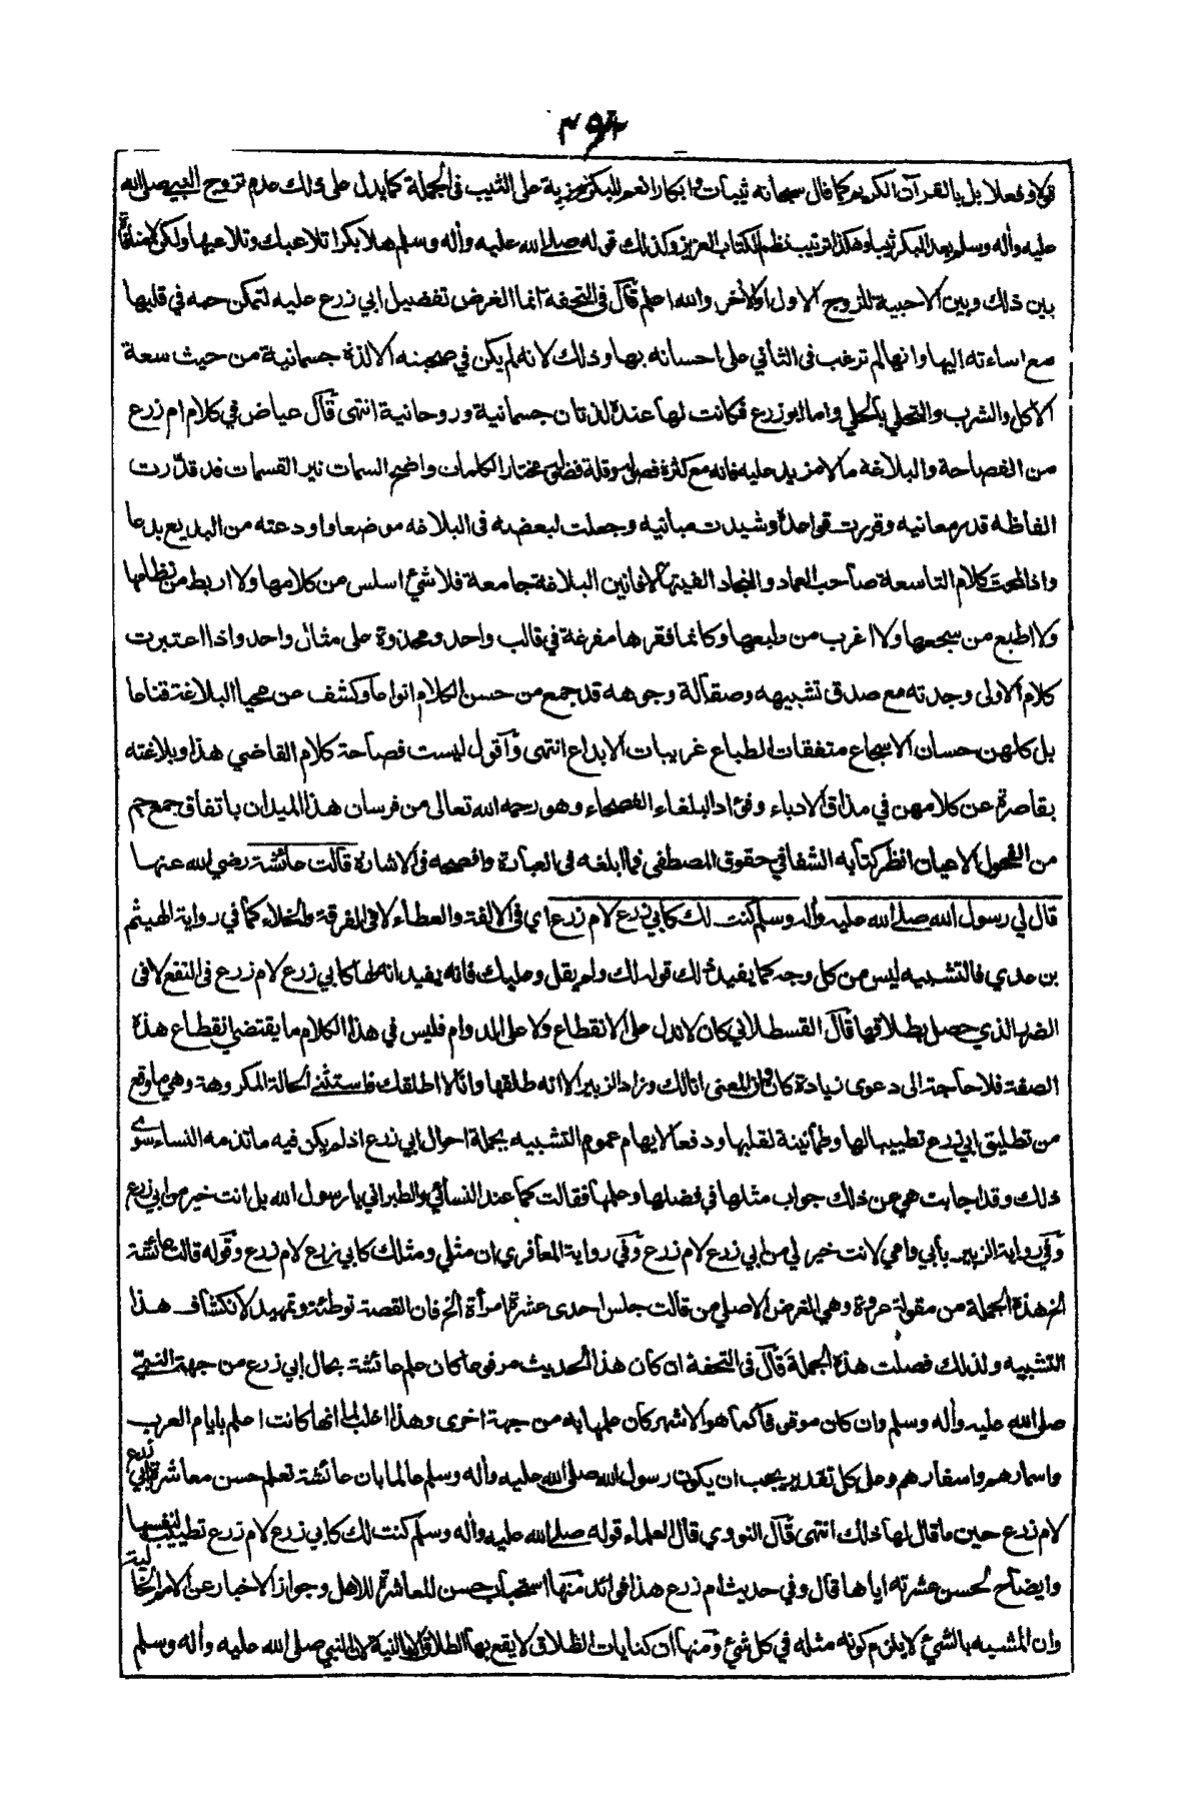 قولا وفعلا بل بالقرآن الكريم كما قال سبحانه ثيبات وابكارا نعم للبكر مزية على الثيب فى الجملة كما يدل على ذلك عدم تزوج النبي صلى الله
عليه وأله وسلم بعد البكر ثيبا وهكذا ترتيب نظم الكتاب العزيز وكذلك قوله صلى الله عليه وأله وسلم هلا بكرا تلاعبك وتلاعبها ولكن لا منافاة
بين ذلك وبين الاحبية للزوج الاول او لأخر والله اعلم قال فى التحفة انما الغرض تفضيل ابي زرع عليه لتمكن حبه في قلبها
مع اساءته اليها وانها لم ترغب فى الثاني على احسانه بها وذلك لانه لم يكن في صحبته الا لذة جسمانية من حيث سعة
الاكل والشرب والتحلي بالحلي واما ابوزرع فكانت لها عنده لذتان جسمانية وروحانية انتهى قال عياض في كلام ام زرع
من الفصاحة والبلاغة ما لا مزيد عليه فانه مع كثرة فصوله وقلة فضوله مختار الكلمات واضح السمات نير القسمات قد قدّرت
الفاظه قدر معانيه وقررت قواعده وشيدت مبانيه وجعلت لبعضه فى البلاغه موضعا واودعته من البديع بدعا
واذا لمحت كلام التاسعة صاحب العماد والنجاد الفيتها لافانين البلاغة جامعة فلا شئ اسلس من كلامها ولا اربط من نظامها
ولا اطبع من سجعها ولا اغرب من طبعها وكانما فقرها مفرغة في قالب واحد ومحذوة على مثال واحد واذا اعتبرت
كلام الاولى وجدته مع صدق تشبيهه وصقالة وجوهه قد جمع من حسن الكلام انواعا وكشف عن محيا البلاغة قناعا
بل كلهن حسان الاسجاع متفقات الطباع غريبات الابداع انتهى وأقول ليست فصاحة كلام القاضي هذا وبلاغته
بقاصرة عن كلامهن في مذاق الادباء وفؤاد البلغاء الفصحاء وهو رحمه الله تعالى من فرسان هذا الميدان باتفاق جمع جم
من الفحول الاعيان انظر كتابه الشفا في حقوق المصطفى فما ابلغه فى العبارة وافصحه فى الاشارة قالت عائشة رضي الله عنها
قال لي رسول الله صلى الله عليه وأله وسلم كنت لك كابي زرع لام زرع اي فى الالفة والعطاء لا فى الفرقة والخلاء كما في رواية الهيثم
بن عدي فالتشبيه ليس من كل وجه كما يفيد ذلك قوله لك ولم يقل وعليك فانه يفيد انه لها كابي زرع لام زرع فى النفع لا فى
الضر الذي حصل بطلاقها قال القسطلاني كان لا تدل على الانقطاع ولا على الدوام فليس في هذا الكلام ما يقتضي انقطاع هذه
الصفة فلا حاجة الى دعوى زيادة كان وان المعنى انا لك وزاد الزبير الا انه طلقها وانا لا اطلقك فاستثنى الحالة المكروهة وهي ما وقع
من تطليق ابي زرع تطييبا لها وطمأنينة لقلبها ودفعا لايهام عموم التشبيه بجملة احوال ابي زرع اذ لم يكن فيه ما تذمه النساء سوى
ذلك وقد اجابت هي عن ذلك جواب مثلها في فضلها وعلمها فقالت كما عند النسائي والطبراني يا رسول الله بل انت خير من ابي زرع
وفي رواية الزبير بأبي وامي لانت خير لي من ابي زرع لام زرع وفي رواية المعافري ان مثلي ومثلك كابي زرع لام زرع وقوله قالت عائشة
الخ هذه الجملة من مقولة عروة وهي الغرض الاصلي من قالت جلس احدى عشرة امرأة الخ فان القصة توطئة وتمهيد لانكشاف هذا
التشبيه ولذلك فصلت هذه الجملة قال فى التحفة ان كان هذا الحديث مرفوعا كان علم عائشة بحال ابي زرع من جهة النبي
صلى الله عليه وأله وسلم وان كان موقوفا كما هو الاشهر كان علمها به من جهة اخرى وهذا اغلب لما انها كانت اعلم بايام العرب
واسمارهم واسفارهم وعلى كل تقدير يجب ان يكون رسول الله صلى الله عليه وأله وسلم عالما بان عائشة تعلم حسن معاشرة ابي زرع
لام زرع حين ما قال لها ذلك انتهى قال النووي قال العلماء قوله صلى الله عليه وأله وسلم كنت لك كابي زرع لام زرع تطييب لنفسها
وايضاح لحسن عشرته اياها قال وفي حديث ام زرع هذا فوائد منها استحباب حسن المعاشرة للاهل وجواز الاخبار عن الامم الخالية
وان المشبه بالشئ لا يلزم كونه مثله في كل شئ ومنها ان كنايات الطلاق لا يقع بها الطلاق الا بالنية لان النبي صلى الله عليه وأله وسلم